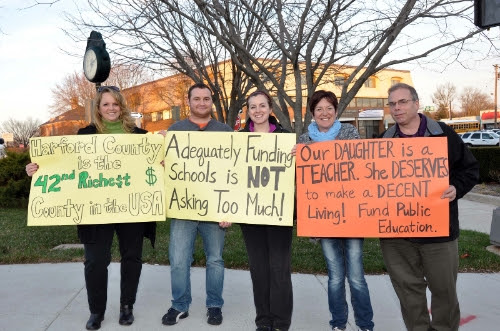 Harford County
is the
42nd Riche$t $
County in the USA
Adequately Funding
Schools is NOT
Asking Too Much!
Our DAUGHTER is a
TEACHER. She DESERVES
to make a DECENT
Living! Fund Public
Education.